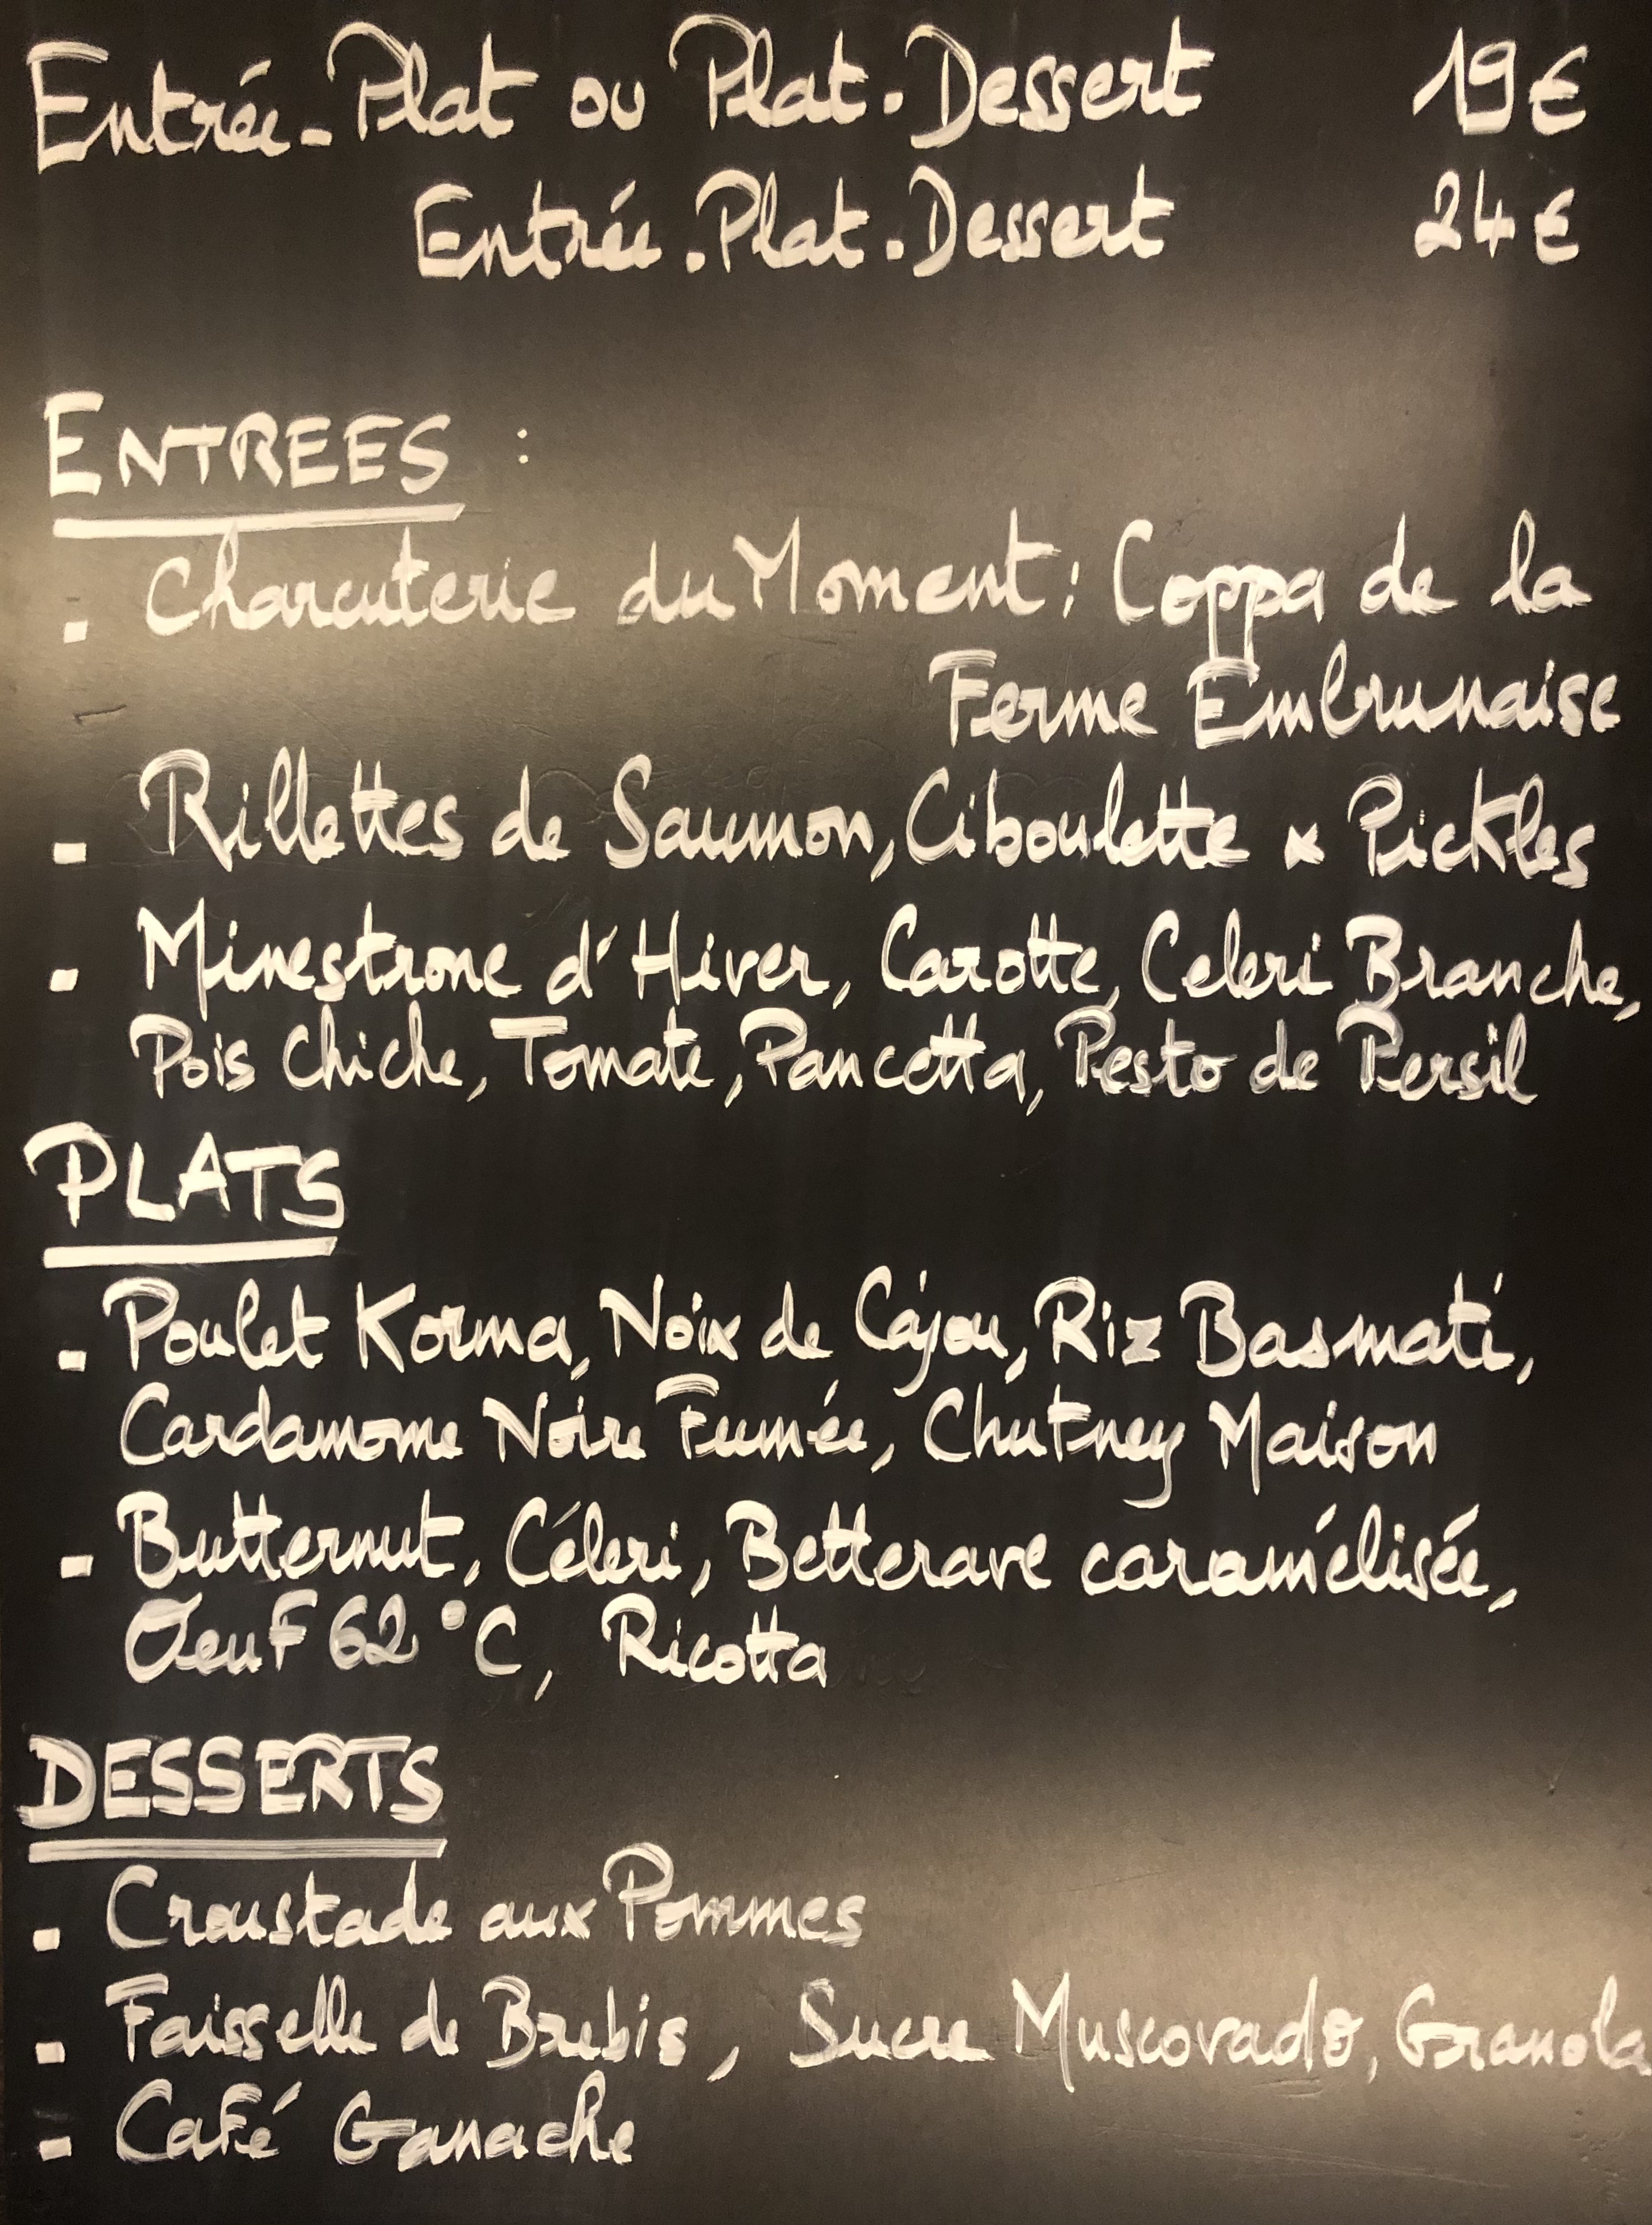 Entrée-Plat ou Plat-Dessert 19€
Entrée.Plat.Dessert 24€
ENTREES :
- Charcuterie du Moment : Coppa de la
Ferme Embrunaise
- Rillettes de Saumon, Ciboulette x Pickles
- Minestrone d'Hiver, Carotte, Celeri Branche,
Pois Chiche, Tomate, Pancetta, Pesto de Persil
PLATS
- Poulet Korma, Noix de Cajou, Riz Basmati,
Cardamome Noire Fumée, Chutney Maison
- Butternut, Céleri, Betterave caramélisée,
Oeuf 62°C, Ricotta
DESSERTS
- Croustade aux Pommes
- Faisselle de Brebis, Sucre Muscovado, Granola
- Café Ganache